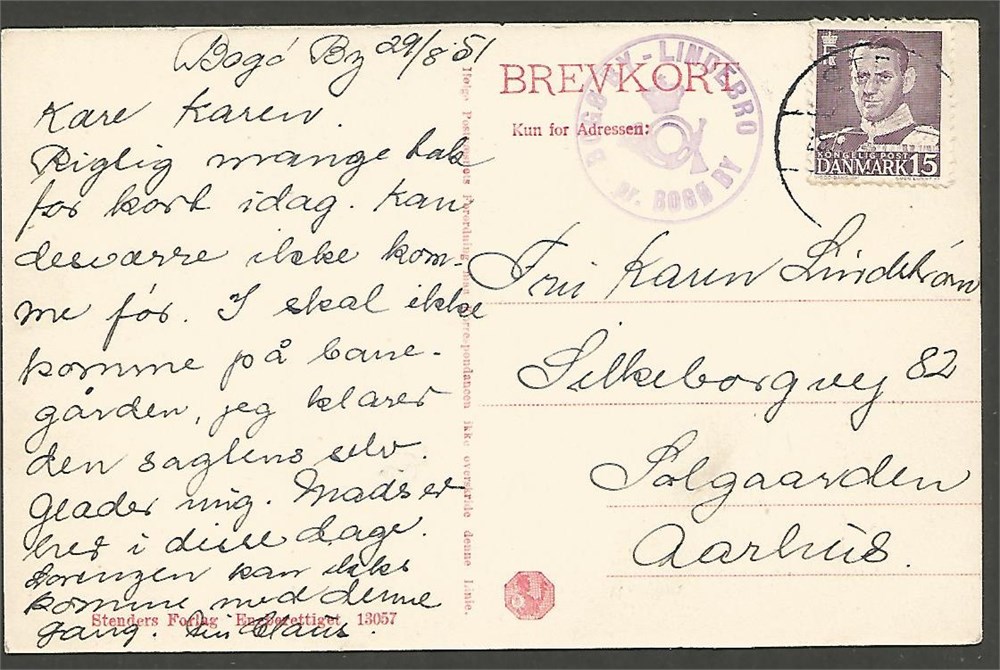 Bogø By 29/8 51
Kære Karen.
Rigtig mange tak
for kort idag. Kan
desværre ikke kom-
me før. I skal ikke
komme på bane-
gården, jeg klarer
den sagtens selv.
Glæder mig. Mads er
her i disse dage.
Lorenzen kan ikke
komme med denne
gang. Din Claus.
Stenders Forlag Eneberettiget 13057
Ifølge Postvæsenets Forordning maa Correspondancen ikke overskride denne Linie.
BREVKORT
Kun for Adressen:
BOGØ BY - LINDEBRO
pr. BOGØ BY
KONGELIG POST
DANMARK 15
Frk Karen Lindstrøm
Silkeborgvej 82
Solgaarden
Aarhus.